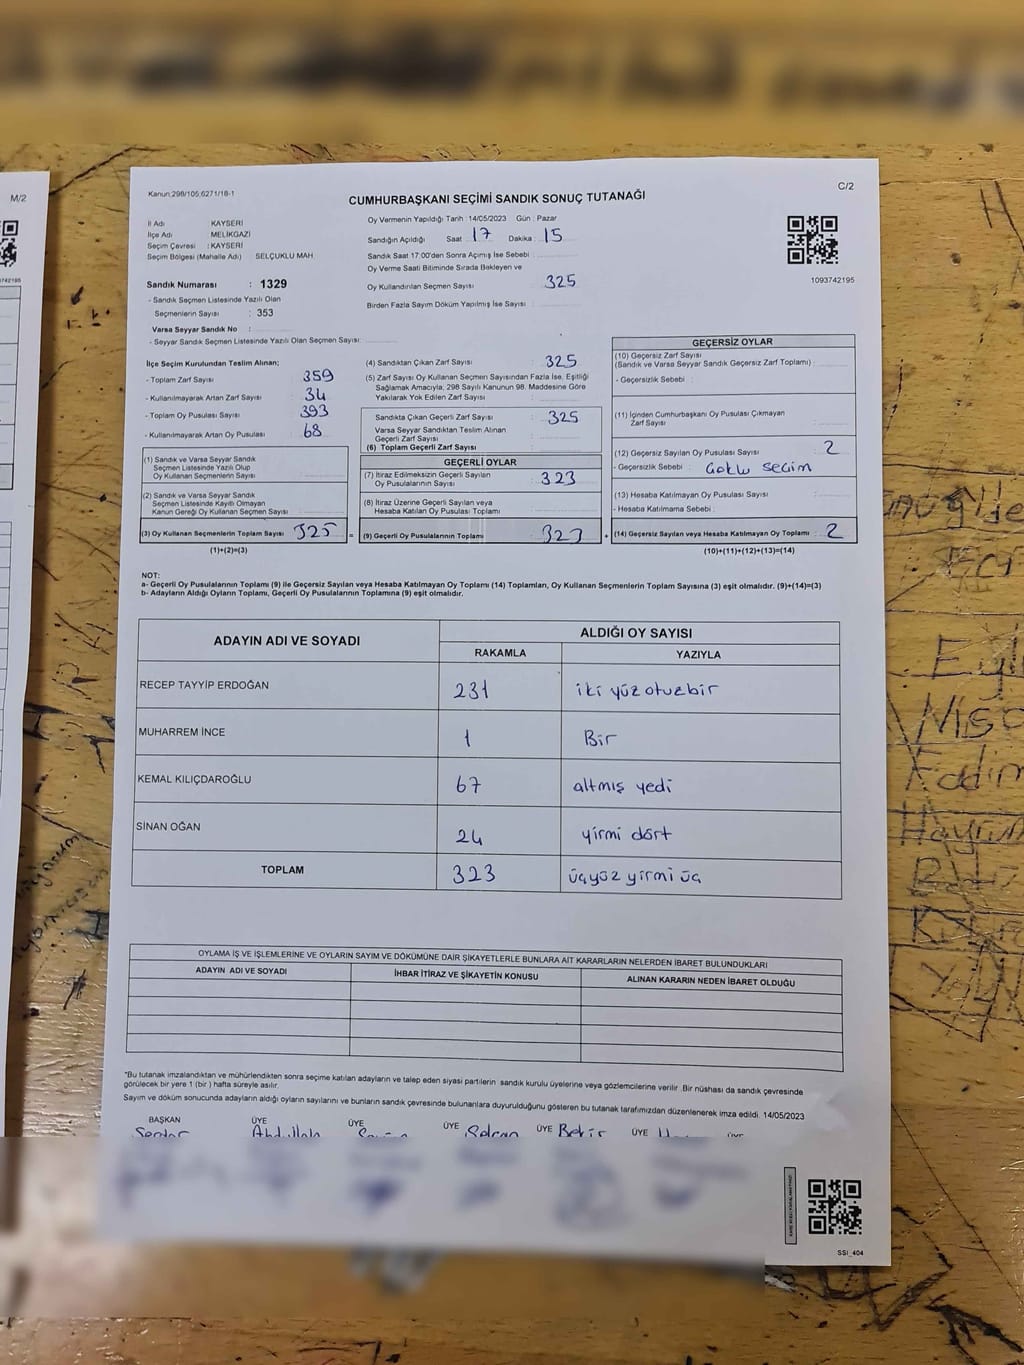 M/2
Kanun:298/105;6271/18-1
C/2
CUMHURBAŞKANI SEÇİMİ SANDIK SONUÇ TUTANAĞI
İl Adı KAYSERİ
İlçe Adı MELİKGAZİ
Seçim Çevresi : KAYSERİ
Seçim Bölgesi (Mahalle Adı) SELÇUKLU MAH.
Oy Vermenin Yapıldığı Tarih : 14/05/2023 Gün : Pazar
Sandığın Açıldığı Saat : 17 Dakika : 15
Sandık Saat 17:00'den Sonra Açımış İse Sebebi :
Oy Verme Saati Bitiminde Sırada Bekleyen ve
Oy Kullandırılan Seçmen Sayısı : 325
Birden Fazla Sayım Döküm Yapılmış İse Sayısı :
1093742195
Sandık Numarası : 1329
- Sandık Seçmen Listesinde Yazılı Olan
Seçmenlerin Sayısı : 353
Varsa Seyyar Sandık No :
- Seyyar Sandık Seçmen Listesinde Yazılı Olan Seçmen Sayısı:
İlçe Seçim Kurulundan Teslim Alınan;
- Toplam Zarf Sayısı : 359
- Kullanılmayarak Artan Zarf Sayısı : 34
- Toplam Oy Pusulası Sayısı : 393
- Kullanılmayarak Artan Oy Pusulası : 68
(1) Sandık ve Varsa Seyyar Sandık
Seçmen Listesinde Yazılı Olup
Oy Kullanan Seçmenlerin Sayısı :
(2) Sandık ve Varsa Seyyar Sandık
Seçmen Listesinde Kayıtlı Olmayan
Kanun Gereği Oy Kullanan Seçmen Sayısı :
(3) Oy Kullanan Seçmenlerin Toplam Sayısı : 325
(1)+(2)=(3)
(4) Sandıktan Çıkan Zarf Sayısı : 325
(5) Zarf Sayısı Oy Kullanan Seçmen Sayısından Fazla İse, Eşitliği
Sağlamak Amacıyla, 298 Sayılı Kanunun 98. Maddesine Göre
Yakılarak Yok Edilen Zarf Sayısı :
Sandıkta Çıkan Geçerli Zarf Sayısı : 325
Varsa Seyyar Sandıktan Teslim Alınan
Geçerli Zarf Sayısı :
(6) Toplam Geçerli Zarf Sayısı :
GEÇERLİ OYLAR
(7) İtiraz Edilmeksizin Geçerli Sayılan
Oy Pusulalarının Sayısı : 323
(8) İtiraz Üzerine Geçerli Sayılan veya
Hesaba Katılan Oy Pusulası Toplamı :
= (9) Geçerli Oy Pusulalarının Toplamı : 323
GEÇERSİZ OYLAR
(10) Geçersiz Zarf Sayısı
(Sandık ve Varsa Seyyar Sandık Geçersiz Zarf Toplamı) :
- Geçersizlik Sebebi :
(11) İçinden Cumhurbaşkanı Oy Pusulası Çıkmayan
Zarf Sayısı :
(12) Geçersiz Sayılan Oy Pusulası Sayısı : 2
- Geçersizlik Sebebi : Çoklu seçim
(13) Hesaba Katılmayan Oy Pusulası Sayısı :
- Hesaba Katılmama Sebebi :
+ (14) Geçersiz Sayılan veya Hesaba Katılmayan Oy Toplamı : 2
(10)+(11)+(12)+(13)=(14)
NOT:
a- Geçerli Oy Pusulalarının Toplamı (9) ile Geçersiz Sayılan veya Hesaba Katılmayan Oy Toplamı (14) Toplamları, Oy Kullanan Seçmenlerin Toplam Sayısına (3) eşit olmalıdır. (9)+(14)=(3)
b- Adayların Aldığı Oyların Toplamı, Geçerli Oy Pusulalarının Toplamına (9) eşit olmalıdır.
ADAYIN ADI VE SOYADI ALDIĞI OY SAYISI
RAKAMLA YAZIYLA
RECEP TAYYİP ERDOĞAN 231 iki yüz otuzbir
MUHARREM İNCE 1 Bir
KEMAL KILIÇDAROĞLU 67 altmış yedi
SİNAN OĞAN 24 yirmi dört
TOPLAM 323 üçyüz yirmi üç
OYLAMA İŞ VE İŞLEMLERİNE VE OYLARIN SAYIM VE DÖKÜMÜNE DAİR ŞİKAYETLERLE BUNLARA AİT KARARLARIN NELERDEN İBARET BULUNDUKLARI
ADAYIN ADI VE SOYADI İHBAR İTİRAZ VE ŞİKAYETİN KONUSU ALINAN KARARIN NEDEN İBARET OLDUĞU
"Bu tutanak imzalandıktan ve mühürlendikten sonra seçime katılan adayların ve talep eden siyasi partilerin sandık kurulu üyelerine veya gözlemcilerine verilir .Bir nüshası da sandık çevresinde
görülecek bir yere 1 (bir ) hafta süreyle asılır.
Sayım ve döküm sonucunda adayların aldığı oyların sayılarını ve bunların sandık çevresinde bulunanlara duyurulduğunu gösteren bu tutanak tarafımızdan düzenlenerek imza edildi. 14/05/2023
BAŞKAN ÜYE ÜYE ÜYE ÜYE ÜYE ÜYE
Serdar Abdullah Selcan Bekir
SSİ_404